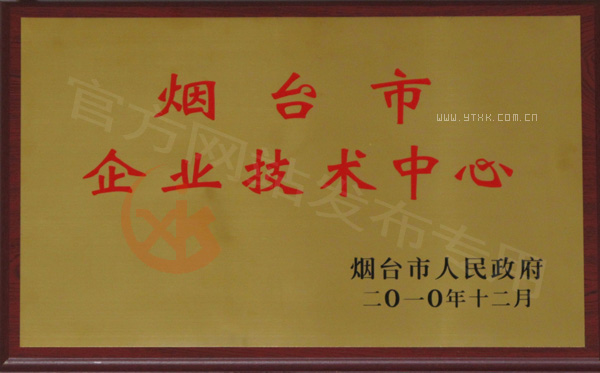 烟台市
www.ytxk.com.cn
企业技术中心
官方网站发布专用
烟台市人民政府
二〇一〇年十二月